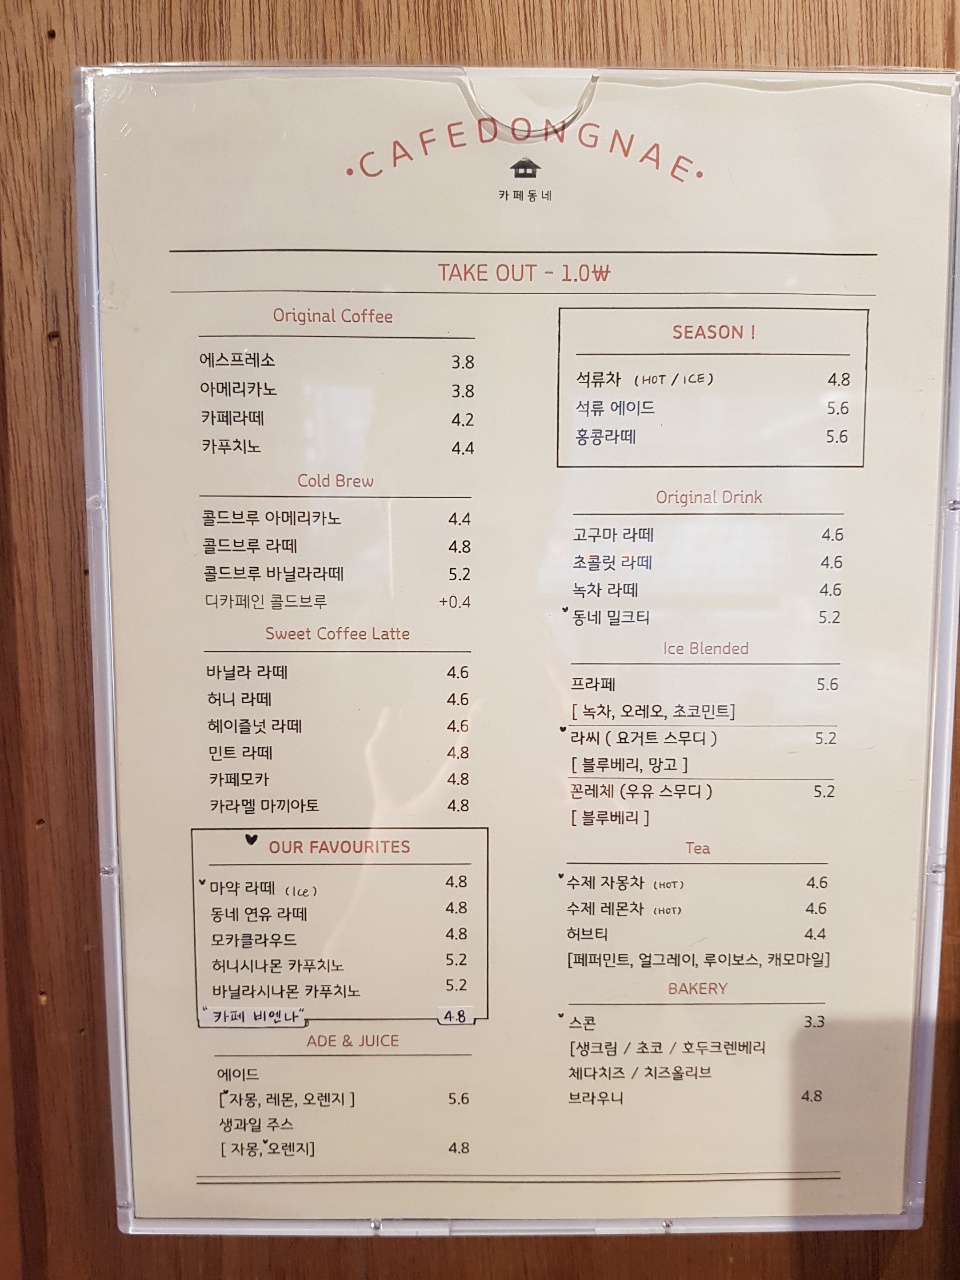 ·CAFEDONGNAE·
카페동네
TAKE OUT - 1.0₩
Original Coffee
에스프레소 3.8
아메리카노 3.8
카페라떼 4.2
카푸치노 4.4
Cold Brew
콜드브루 아메리카노 4.4
콜드브루 라떼 4.8
콜드브루 바닐라라떼 5.2
디카페인 콜드브루 +0.4
Sweet Coffee Latte
바닐라 라떼 4.6
허니 라떼 4.6
헤이즐넛 라떼 4.6
민트 라떼 4.8
카페모카 4.8
카라멜 마끼아토 4.8
♥ OUR FAVOURITES
♥마약 라떼 (Ice) 4.8
동네 연유 라떼 4.8
모카클라우드 4.8
허니시나몬 카푸치노 5.2
바닐라시나몬 카푸치노 5.2
"카페 비엔나" 4.8
ADE & JUICE
에이드
[♥자몽, 레몬, 오렌지 ] 5.6
생과일 주스
[ 자몽,♥오렌지] 4.8
SEASON !
석류차 (HOT / ICE) 4.8
석류 에이드 5.6
홍콩라떼 5.6
Original Drink
고구마 라떼 4.6
초콜릿 라떼 4.6
녹차 라떼 4.6
♥동네 밀크티 5.2
Ice Blended
프라페 5.6
[ 녹차, 오레오, 초코민트]
♥라씨 ( 요거트 스무디 ) 5.2
[ 블루베리, 망고 ]
꼰레체 (우유 스무디 ) 5.2
[ 블루베리 ]
Tea
♥수제 자몽차 (HOT) 4.6
수제 레몬차 (HOT) 4.6
허브티 4.4
[페퍼민트, 얼그레이, 루이보스, 캐모마일]
BAKERY
♥스콘 3.3
[생크림 / 초코 / 호두크렌베리
체다치즈 / 치즈올리브
브라우니 4.8